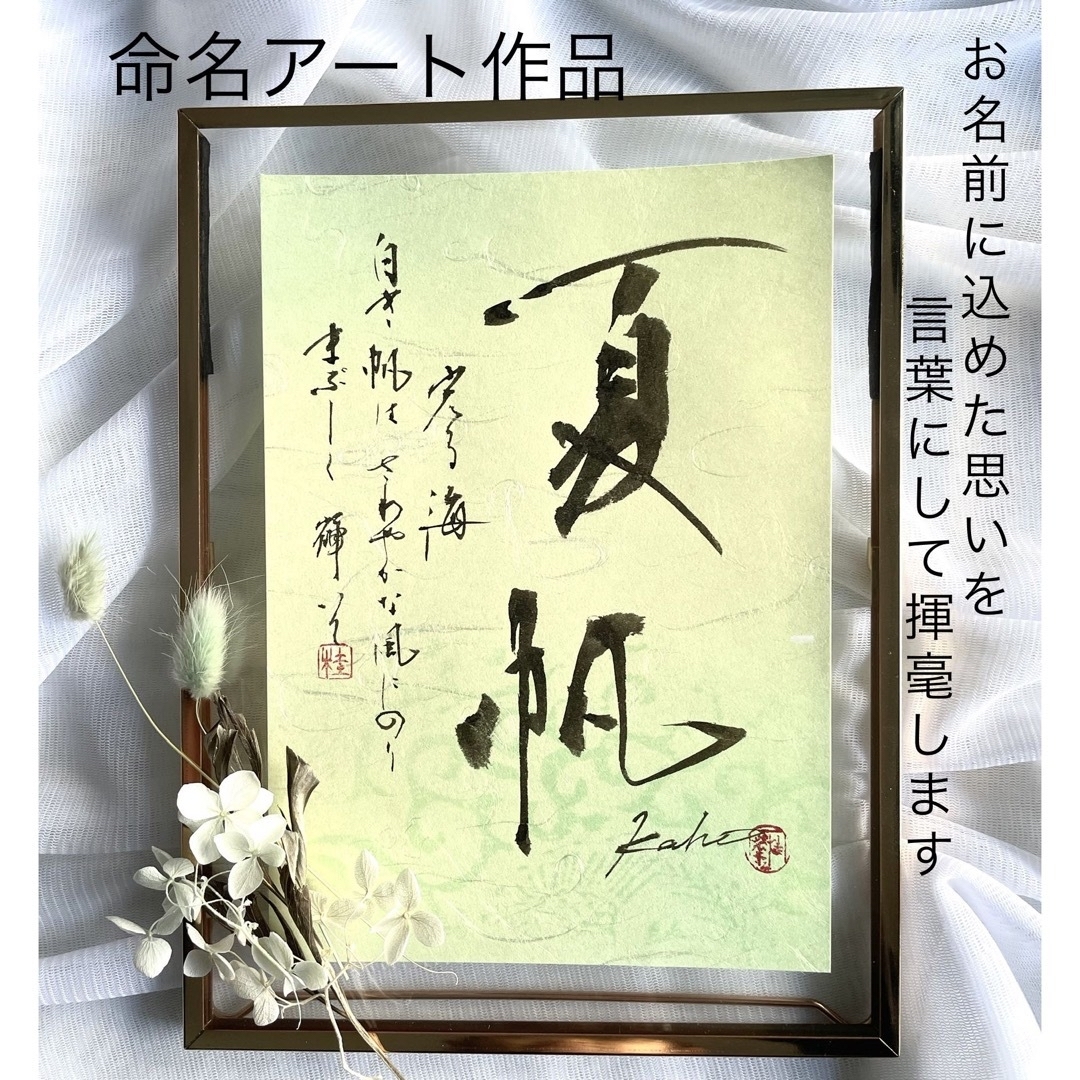 命名アート作品
お名前に込めた思いを
言葉にして揮毫します
夏帆
Kaho
光る海
白き帆はさわやかな風にのり
まぶしく輝いて